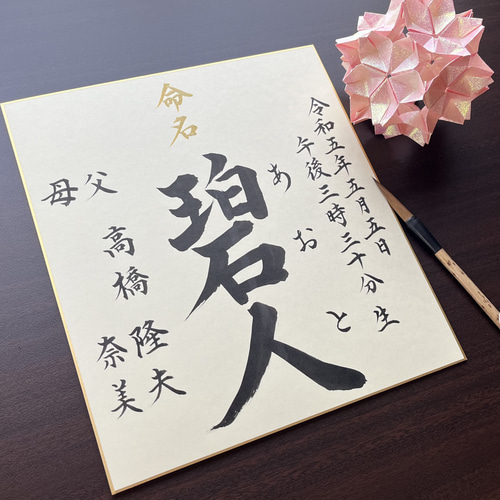 命名
令和五年五月五日
午後三時三十分生
あおと
碧人
父 高橋 隆夫
母 奈美